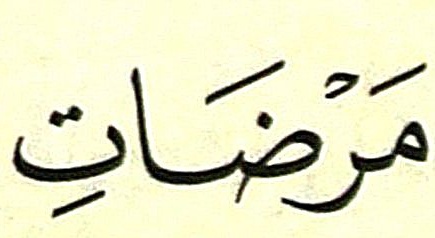 مَرْضَاتِ